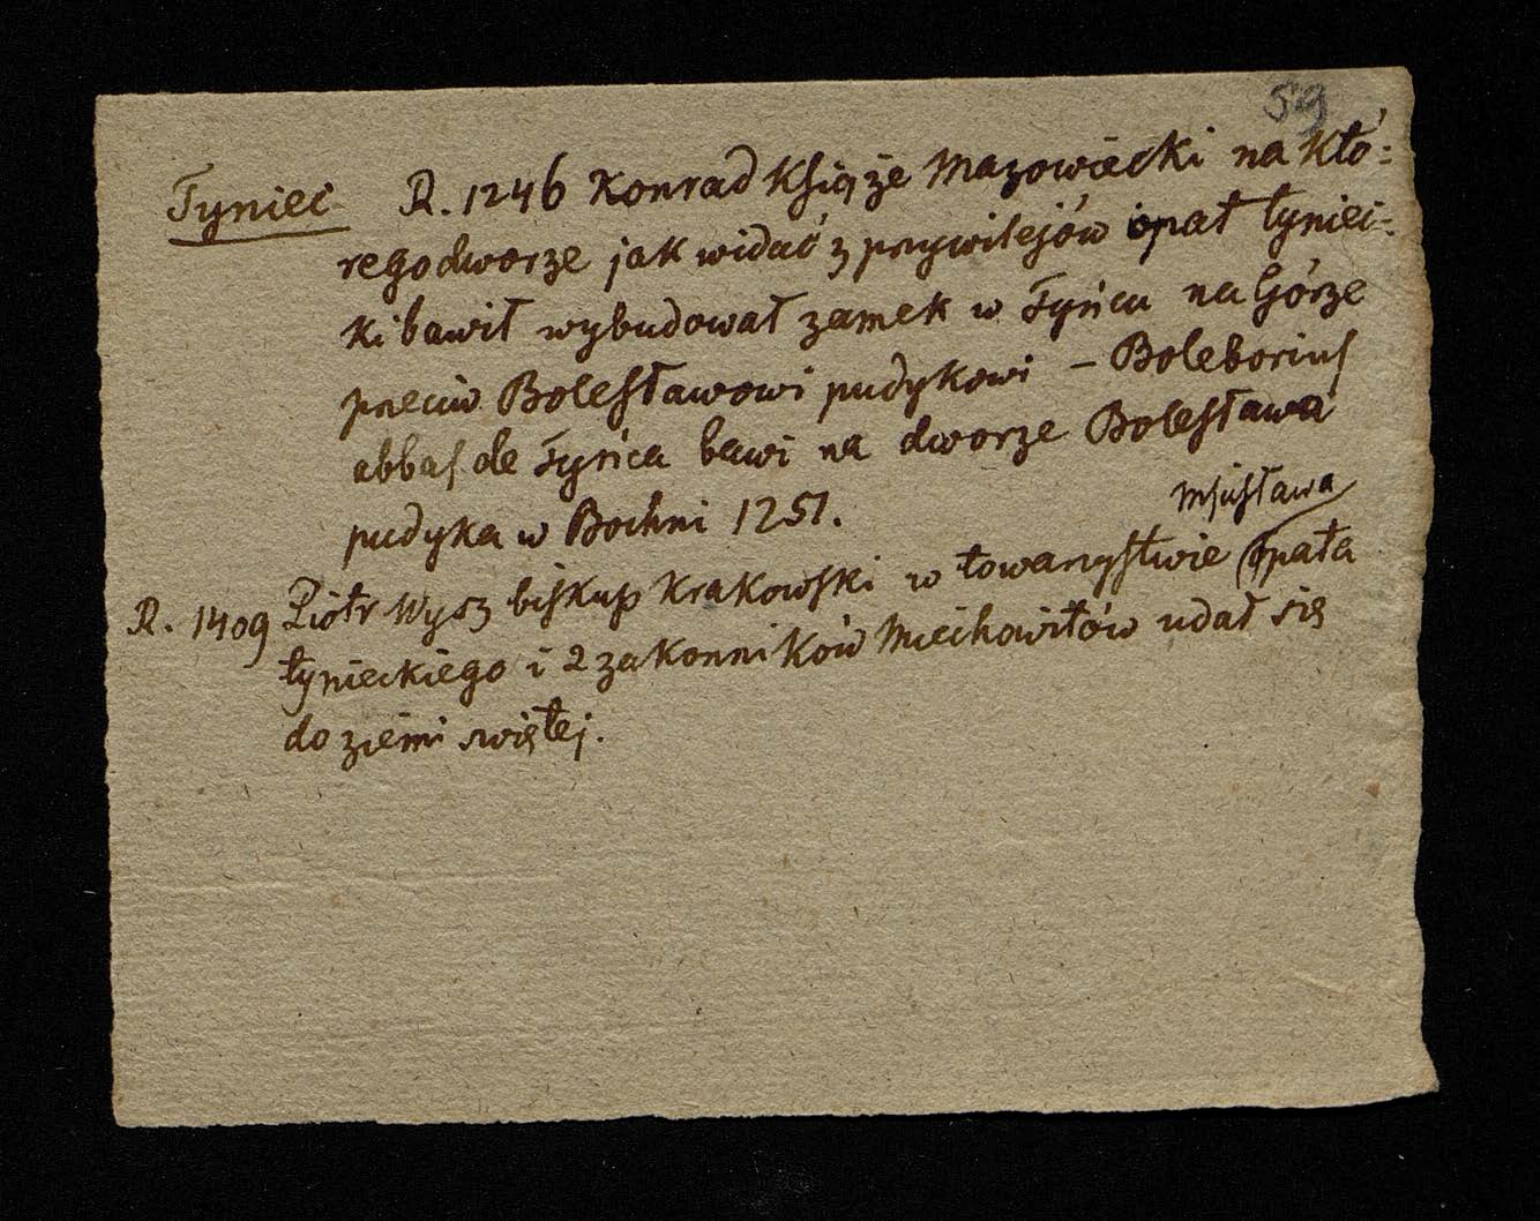 59
Tyniec R. 1246 Konrad Książe Mazowiecki na któ:
rego dworze jak widać z przywilejów opat tyniec:
ki bawił wybudował zamek w Tyńcu na Górze
przeciw Bolesławowi pudykowi – Boleborius
abbas de Tyńca bawi na dworze Bolesława
pudyka w Bochni 1251.
Mścisława
R. 1409 Piotr Wysz biskup Krakowski w towarzystwie opata
tynieckiego i 2 zakonników Miechowitów udał się
do ziemi świętej.